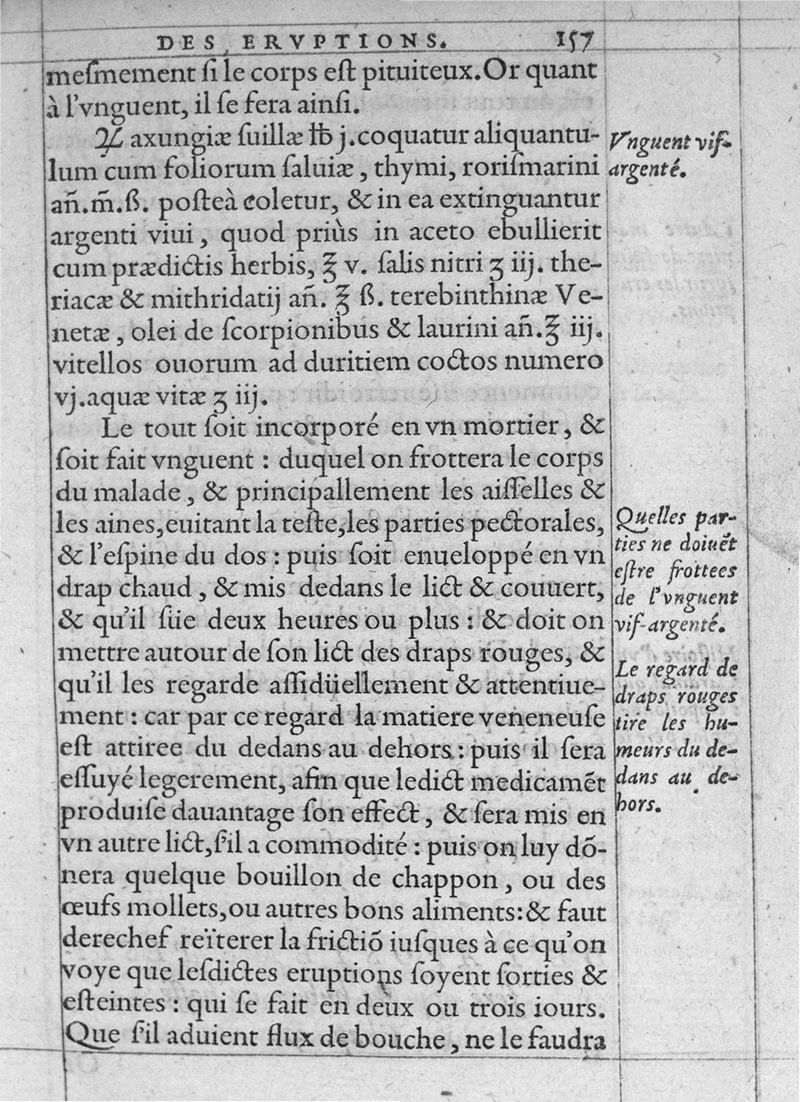 DES ERVPTIONS. 157
meſmement ſi le corps eſt pituiteux. Or quant
à l'vnguent, il ſe fera ainſi.
℞ axungiæ ſuillæ ℔ j. coquatur aliquantu-
lum cum foliorum ſaluiæ, thymi, roriſmarini
añ. m̃. ß. poſteà coletur, & in ea extinguantur
argenti viui, quod priùs in aceto ebullierit
cum prædictis herbis, ℥ v. ſalis nitri ʒ iij. the-
riacæ & mithridatij añ. ℥ ß. terebinthinæ Ve-
netæ, olei de ſcorpionibus & laurini añ. ℥ iij.
vitellos ouorum ad duritiem coctos numero
vj. aquæ vitæ ʒ iij.
Vnguent vif-
argenté.
Le tout ſoit incorporé en vn mortier, &
ſoit fait vnguent : duquel on frottera le corps
du malade, & principallement les aiſſelles &
les aines, euitant la teſte, les parties pectorales,
& l'eſpine du dos : puis ſoit enueloppé en vn
drap chaud, & mis dedans le lict & couuert,
& qu'il ſüe deux heures ou plus : & doit on
mettre autour de ſon lict des draps rouges, &
qu'il les regarde aſſidüellement & attentiue-
ment : car par ce regard la matiere veneneuſe
eſt attiree du dedans au dehors : puis il ſera
eſſuyé legerement, afin que ledict medicamẽt
produiſe dauantage ſon effect, & ſera mis en
vn autre lict, ſ'il a commodité : puis on luy dõ-
nera quelque bouillon de chappon, ou des
œufs mollets, ou autres bons aliments : & faut
derechef reïterer la frictiõ iuſques à ce qu'on
voye que leſdictes eruptions ſoyent ſorties &
eſteintes : qui ſe fait en deux ou trois iours.
Que ſ'il aduient flux de bouche, ne le faudra
Quelles par-
ties ne doiuẽt
eſtre frottees
de l'vnguent
vif-argenté.
Le regard de
draps rouges
tire les hu-
meurs du de-
dans au de-
hors.